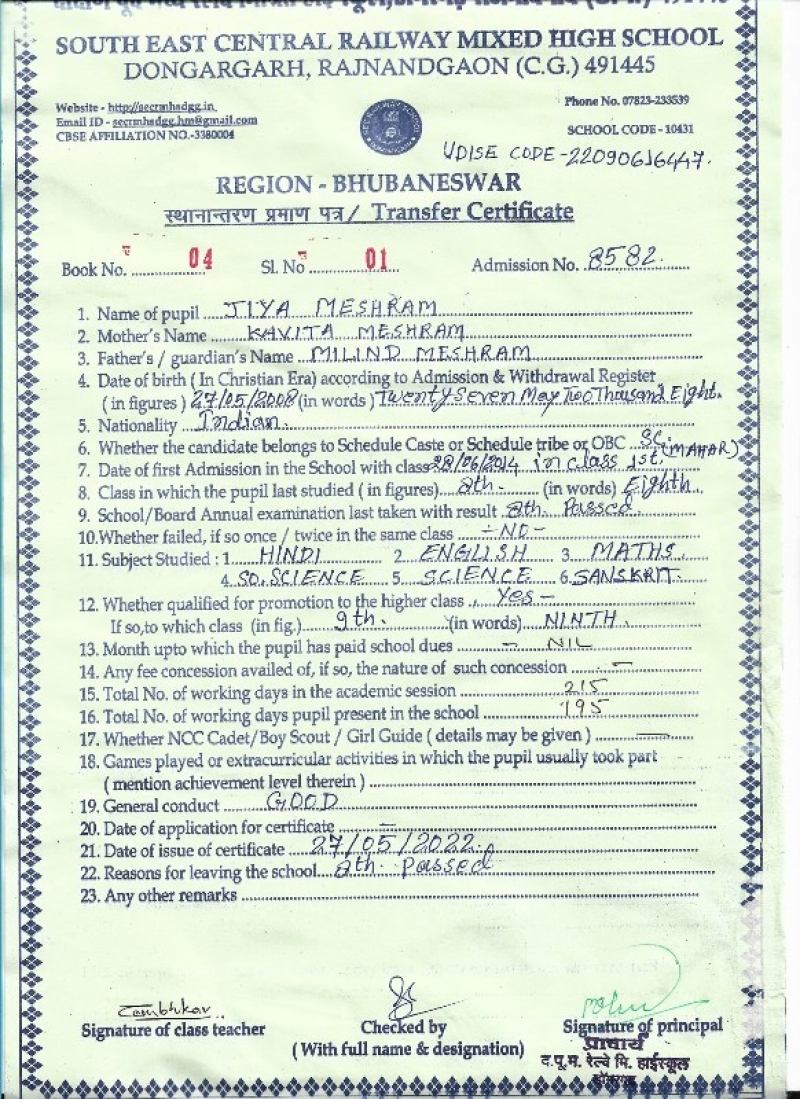 SOUTH EAST CENTRAL RAILWAY MIXED HIGH SCHOOL
DONGARGARH, RAJNANDGAON (C.G.) 491445
Website - http://secrmhsdgg.in
Phone No. 07823-233539
Email ID - secrmhsdgg.hm@gmail.com
CBSE AFFILIATION NO.-3380004
SCHOOL CODE - 10431
UDISE CODE-22090616447.
REGION - BHUBANESWAR
स्थानान्तरण प्रमाण पत्र / Transfer Certificate
Book No. 04 Sl. No 01 Admission No. 8582.
1. Name of pupil JIYA MESHRAM
2. Mother's Name KAVITA MESHRAM
3. Father's / guardian's Name MILIND MESHRAM
4. Date of birth ( In Christian Era) according to Admission & Withdrawal Register
( in figures ) 27/05/2008 (in words ) Twenty Seven May Two Thousand Eight.
5. Nationality Indian.
6. Whether the candidate belongs to Schedule Caste or Schedule tribe or OBC SC. (MAHAR)
7. Date of first Admission in the School with class 28/06/2014 in class 1st.
8. Class in which the pupil last studied ( in figures) 8th. (in words) Eighth
9. School/Board Annual examination last taken with result 8th. Passed
10. Whether failed, if so once / twice in the same class -NO-
11. Subject Studied : 1. HINDI 2. ENGLISH 3. MATHS.
4. SO. SCIENCE 5. SCIENCE 6. SANSKRIT.
12. Whether qualified for promotion to the higher class Yes -
If so,to which class (in fig.) 9th. (in words) NINTH.
13. Month upto which the pupil has paid school dues - NIL
14. Any fee concession availed of, if so, the nature of such concession -
15. Total No. of working days in the academic session 215
16. Total No. of working days pupil present in the school 195
17. Whether NCC Cadet/Boy Scout / Girl Guide ( details may be given )
18. Games played or extracurricular activities in which the pupil usually took part
( mention achievement level therein )
19. General conduct GOOD
20. Date of application for certificate -
21. Date of issue of certificate 27/05/2022.
22. Reasons for leaving the school 8th. Passed
23. Any other remarks
Signature of class teacher
Checked by
Signature of principal
( With full name & designation)
प्राचार्य
द.पू.म. रेल्वे मि. हाईस्कूल